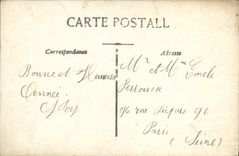 CARTE POSTALL
Correspondance
Adresse
Bonne et Heureuse
Année
Mr et Mme Emile
Perrouse
96 rue 96
Paris
(Seine)